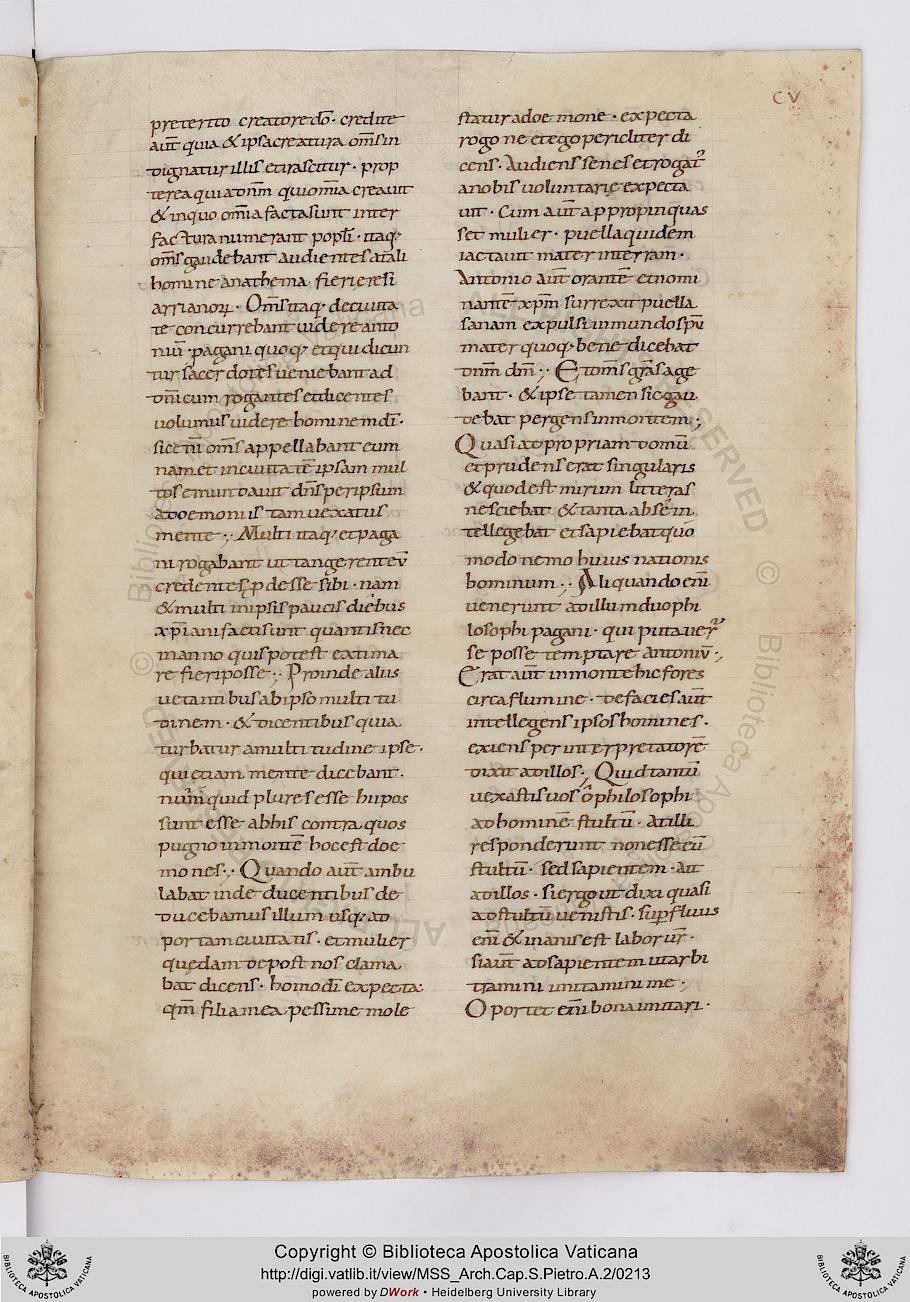 CV
preterito creatore dō· credite
aut̄ quia & ipsa creatura om̄s in
dignatur illis et irascitur· prop
terea quia dnm̄ qui om̄ia creauit
& in quo om̄ia facta sunt inter
facturam numerant popl̄i· itaq·
om̄s gaudebant audientes a tali
homine anathema fieri eresī
arrianoꝝ· Om̄s itaq· de ciuita
te concurrebant uidere anto
niū· pagani quoq· et qui dicun
tur sacerdotes ueniebant ad
dnīcum rogantes et dicentes
uolumus uidere hominem dī·
sic eni om̄s appellabant eum
nam et in ciuitatē ipsam mul
tos emundauit dn̄s per ipsum
a doemoniis tam uexatus
mente·, Multi itaq· et paga
ni rogabant ut tangerent eū
credentes ꝓdesse sibi· nam
& multi in ipsis paucis diebus
xp̄iani facti sunt quantis nec
in anno quis potest extima
re fieri posse·, Proinde aliis
uetantibus ab ipso multitu
dinem· & dicentibus quia
turbatur a multitudine ipse·
qui etiam mente dicebant·
numquid plures esse hii pos
sunt esse ab his contra quos
pugno in montē hoc est doe
mones·, Quando aut̄ ambu
labat inde ducentibus de
ducebamus illum usq· ad
portam ciuitatis· et mulier
quędam de post nos clama
bat dicens· homo dī expecta·
qm̄ filia mea pessime mole
statur a doemone· expecta
rogo ne et ego pericliter di
cens· Audiens senes et rogat᷒
a nobis uoluntarię expecta
uit· Cum aut̄ appropinquas
set mulier· puella quidem
iactauit mater in terram·
Antonio aut̄ orantē et nomi
nantē xp̄m surrexit puella
sanam expulsi inmundo spū
mater quoq· benedicebat
dnm̄ dm̄·, Et om̄s gr̄as age
bant· & ipse tamen sic gau
debat pergens in montem·,
Quasi ad propriam domū
et prudens erat singularis
& quod est mirum litteras
nesciebat & tanta absē in
tellegebat et sapiebat quo
modo nemo huius nationis
hominum·, Aliquando enī
uenerunt ad illum duo phi
losophi pagani· qui putauer᷒
se posse temptare antoniū·,
Erat aut̄ in monte hec fores
circa flumine· de facies aut̄
intellegens ipsos homines·
exiens per interpretatorē
dixit ad illos·, Quid tantū
uexastis uos o philosophi
ad hominē stultū· At illi
responderunt non esse eū
stultū· sed sapientem· ait
ad illos· si ergo ut dixi quasi
ad stultū uenistis· sup̄fluus
enī & inanis est labor ur̄·
si aut̄ ad sapientem ut arbi
tramini imitamini me·,
Oportet enī bona imitari·
Copyright © Biblioteca Apostolica Vaticana
http://digi.vatlib.it/view/MSS_Arch.Cap.S.Pietro.A.2/0213
powered by DWork • Heidelberg University Library
BIBLIOTECA APOSTOLICA VATICANA
BIBLIOTECA APOSTOLICA VATICANA